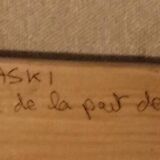 ASKI
de la part de